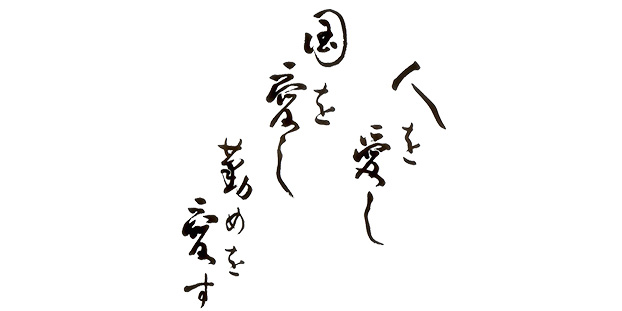 人を愛し
国を愛し
勤めを愛す